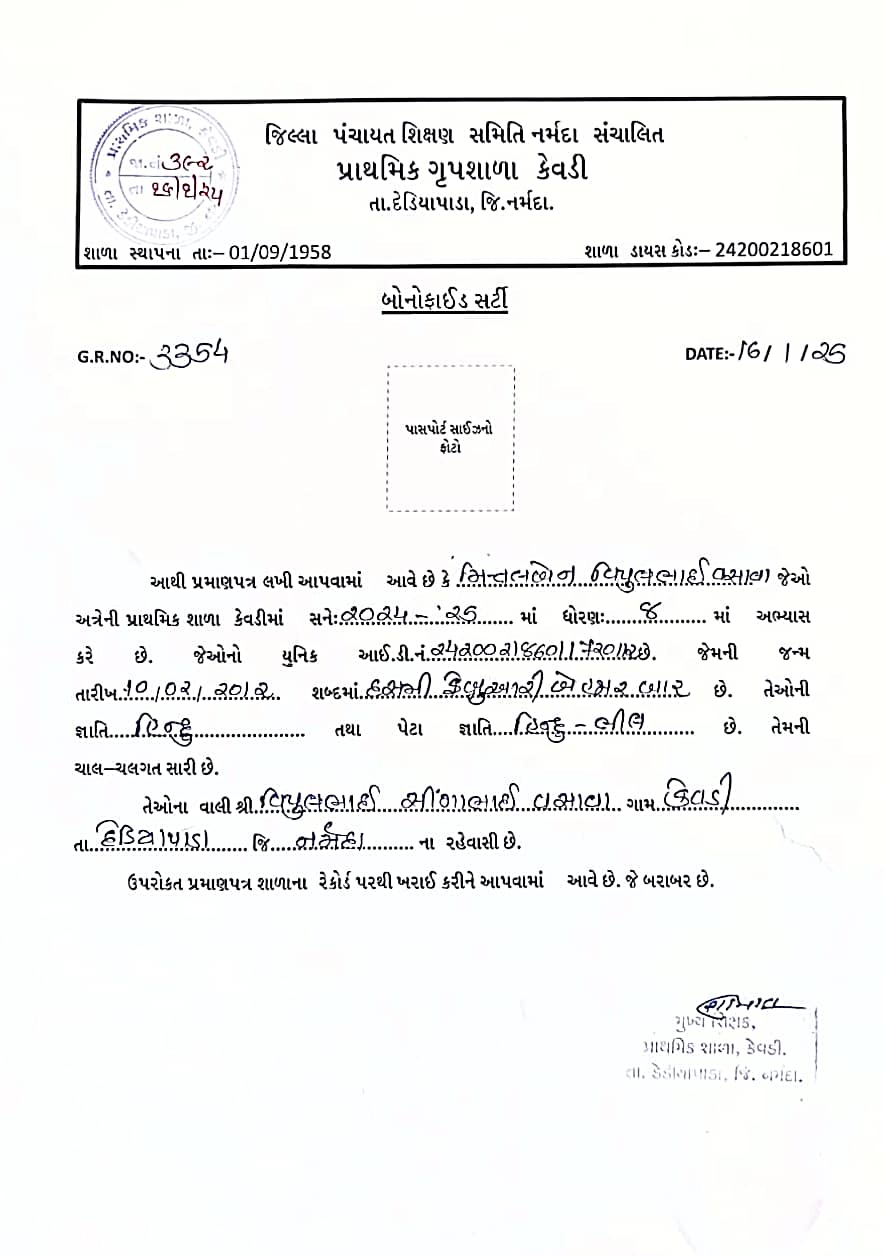 જિલ્લા પંચાયત શિક્ષણ સમિતિ નર્મદા સંચાલિત
પ્રાથમિક ગૃપશાળા કેવડી
તા.દેડિયાપાડા, જિ.નર્મદા.
પ્રાથમિક શાળા,
જા.નં
તા
શાળા સ્થાપના તાઃ– 01/09/1958 શાળા ડાયસ કોડઃ– 24200218601
બોનોફાઈડ સર્ટી
G.R.NO:- 3354 DATE:- 16/1/25
પાસપોર્ટ સાઈઝનો
ફોટો
આથી પ્રમાણપત્ર લખી આપવામાં આવે છે કે વિપુલભાઈ વસાવા જેઓ
અત્રેની પ્રાથમિક શાળા કેવડીમાં સનેઃ 2024-'25 માં ધોરણઃ 8 માં અભ્યાસ
કરે છે. જેઓનો યુનિક આઈ.ડી.નં. છે. જેમની જન્મ
તારીખ 10/02/2012 શબ્દમાં બાર છે. તેઓની
જ્ઞાતિ હિન્દુ તથા પેટા જ્ઞાતિ હિન્દુ-ભીલ છે. તેમની
ચાલ–ચલગત સારી છે.
તેઓના વાલી શ્રી. વિપુલભાઈ વસાવા ગામ કેવડી
તા. દેડિયાપાડા જિ. નર્મદા ના રહેવાસી છે.
ઉપરોકત પ્રમાણપત્ર શાળાના રેકોર્ડ પરથી ખરાઈ કરીને આપવામાં આવે છે. જે બરાબર છે.
મુખ્ય શિક્ષક,
પ્રાથમિક શાળા, કેવડી.
તા. દેડીયાપાડા, જિ. નર્મદા.